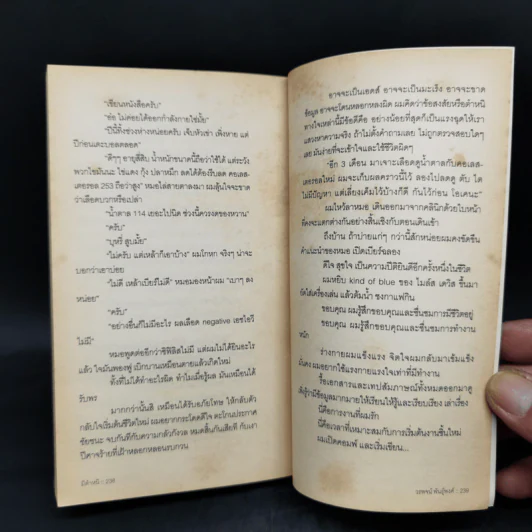 "เขียนหนังสือครับ"
"อ๋อ ไม่ค่อยได้ออกกำลังกายใช่มั้ย"
"ปีนี้ทิ้งช่วงห่างหน่อยครับ เจ็บหัวเข่า เพิ่งหาย แต่
ปีก่อนเตะบอลตลอด"
"ดีๆๆ อายุสี่สิบ น้ำหนักขนาดนี้ถือว่าใช้ได้ แต่ระวัง
พวกไขมันนะ ไข่แดง กุ้ง ปลาหมึก ลดได้ต้องรีบลด คอเลส-
เตอรอล 253 ถือว่าสูง" หมอไล่สายตาลงมา ผมลุ้นใจจะขาด
ว่าเลือดบวกหรือเปล่า
"น้ำตาล 114 เยอะไปนิด ช่วงนี้ควรงดของหวาน"
"ครับ"
"บุหรี่ สูบมั้ย"
"ไม่ครับ แต่เหล้าก็เอาบ้าง" ผมโกหก จริงๆ น่าจะ
บอกว่าเอาบ่อย
"ไม่ดี เหล้าเบียร์ไม่ดี" หมอมองหน้าผม "เบาๆ ลง
หน่อย"
"ครับ"
"อย่างอื่นก็ไม่มีอะไร ผลเลือด negative เอชไอวี
ไม่มี"
หมอพูดต่ออีกว่าซิฟิลิสไม่มี แต่ผมไม่ได้ยินอะไร
แล้ว ใจมันพองฟู เบิกบานเหมือนตายแล้วเกิดใหม่
ทั้งที่ไม่ได้ทำอะไรผิด ทำไมเมื่อรู้ผล มันเหมือนได้
รับพร
มากกว่านั้นสิ เหมือนได้รับอภัยโทษ ให้กลับตัว
กลับใจเริ่มต้นชีวิตใหม่ ผมอยากกระโดดดีใจ ตะโกนประกาศ
ชัยชนะ จบกันทีกับความกลัวกังวล หมดสิ้นกันเสียที กับเงา
ปีศาจร้ายที่เฝ้าหลอกหลอนรบกวน
: 238
อาจจะเป็นเอดส์ อาจจะเป็นมะเร็ง อาจจะขาด
ข้อมูล อาจจะโดนหลอกหลงผิด ผมคิดว่าข้อสงสัยหรือตำหนิ
ทางใจเหล่านี้มีข้อดีคือ อย่างน้อยที่สุดก็เป็นแรงฉุดให้เรา
แสวงหาความจริง ถ้าไม่ตั้งคำถามเลย ไม่ถูกตรวจสอบใดๆ
เลย มันง่ายที่จะเข้าใจและใช้ชีวิตผิดๆ
"อีก 3 เดือน มาเจาะเลือดดูน้ำตาลกับคอเลส-
เตอรอลใหม่ ผมจะเก็บผลคราวนี้ไว้ ลองไปลดดู ตับ ไต
ไม่มีปัญหา แต่เลี่ยงเค็มไว้บ้างก็ดี กันไว้ก่อน โอเคนะ"
ผมไหว้ลาหมอ เดินออกมาจากคลินิกด้วยใบหน้า
ที่คงจะแตกต่างกันอย่างสิ้นเชิงกับตอนเดินเข้า
ถึงบ้าน ถ้าบ่ายแก่ๆ กว่านี้สักหน่อยผมคงขัดขืน
คำแนะนำของหมอ เปิดเบียร์ฉลอง
ดีใจ สุขใจ เป็นความปีติยินดีอีกครั้งหนึ่งในชีวิต
ผมหยิบ kind of blue ของ ไมล์ส เดวิส ขึ้นมา
ยัดใส่เครื่องเล่น แล้วต้มน้ำ ชงกาแฟกิน
ขอบคุณ ผมรู้สึกขอบคุณและชื่นชมการมีชีวิตอยู่
ขอบคุณ ผมรู้สึกขอบคุณและชื่นชมการทำงาน
หนัก
ร่างกายผมแข็งแรง จิตใจผมกลับมาเข้มแข็ง
มั่นคง ผมอยากใช้แรงกายแรงใจเท่าที่มีทำงาน
รื้อเอกสารและเทปสัมภาษณ์ทั้งหมดออกมาดู
เพิ่งรู้ว่ามีข้อมูลมากมายให้เรียนให้รู้และเรียบเรียง เล่าเรื่อง
นี่คือการงานที่ผมรัก
นี่คือเวลาที่เหมาะสมกับการเริ่มต้นงานชิ้นใหม่
ผมเปิดคอมฯ และเริ่มเขียน...
วรพจน์ พันธุ์พงศ์ : 239